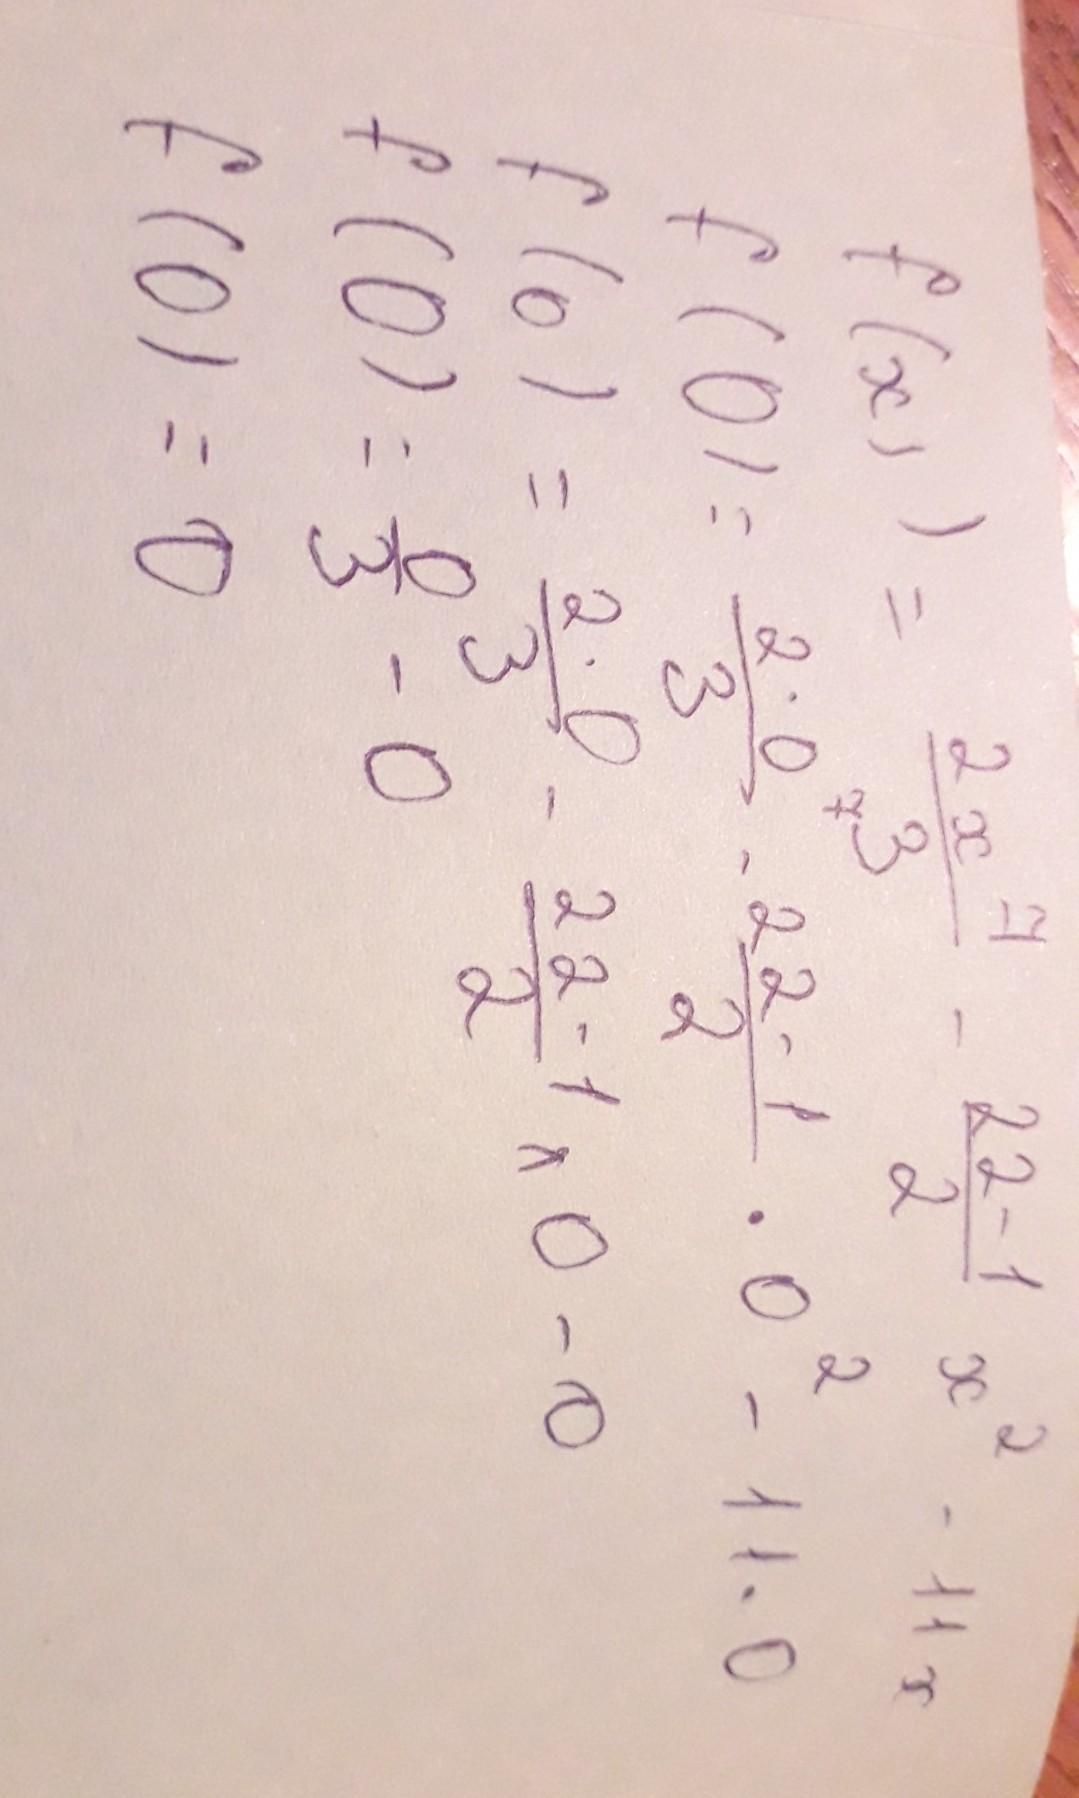 f(x)) = 2x⁷/3 - 22-1/2 x² - 11x
f(0) = 2·0⁷/3 - 22-1/2 · 0² - 11·0
f(0) = 2·0/3 - 22-1/2 × 0 - 0
f(0) = 0/3 - 0
f(0) = 0